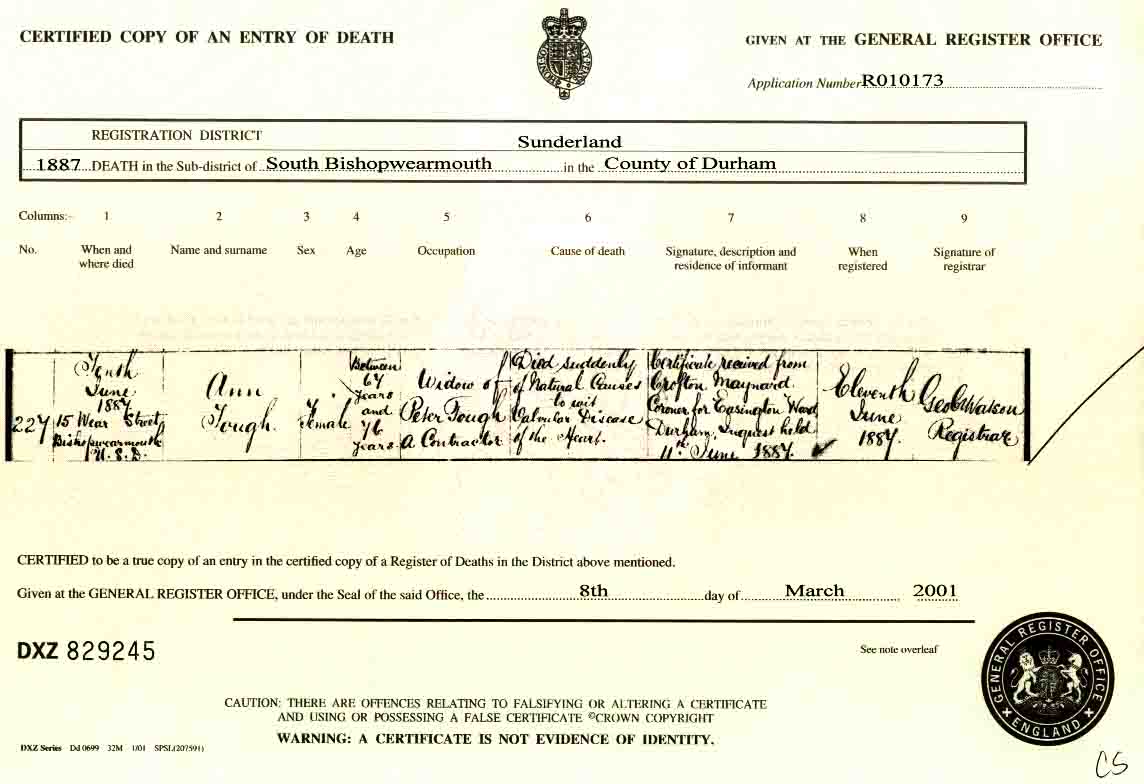 CERTIFIED COPY OF AN ENTRY OF DEATH
GIVEN AT THE GENERAL REGISTER OFFICE
Application Number R010173
REGISTRATION DISTRICT Sunderland
1887 DEATH in the Sub-district of South Bishopwearmouth in the County of Durham
Columns:- 1 2 3 4 5 6 7 8 9
No. When and where died Name and surname Sex Age Occupation Cause of death Signature, description and residence of informant When registered Signature of registrar
227
Tenth
June
1887
15 Wear Street
Bishopwearmouth
U.S.D.
Ann
Tough
Female
Between
67
years
and
76
years
Widow of
Peter Tough
A Contractor
Died suddenly
of Natural Causes
to wit
Valvular Disease
of the Heart.
Certificate received from
Crofton Maynard
Coroner for Easington Ward
Durham, Inquest held
11th June 1887.
Eleventh
June
1887.
Watson
Registrar
CERTIFIED to be a true copy of an entry in the certified copy of a Register of Deaths in the District above mentioned.
Given at the GENERAL REGISTER OFFICE, under the Seal of the said Office, the 8th day of March 2001
DXZ 829245
See note overleaf
GENERAL REGISTER OFFICE
ENGLAND
CAUTION: THERE ARE OFFENCES RELATING TO FALSIFYING OR ALTERING A CERTIFICATE
AND USING OR POSSESSING A FALSE CERTIFICATE ©CROWN COPYRIGHT
WARNING: A CERTIFICATE IS NOT EVIDENCE OF IDENTITY.
DXZ Series Dd 0699 32M 1/01 SPSL(207591)
CS